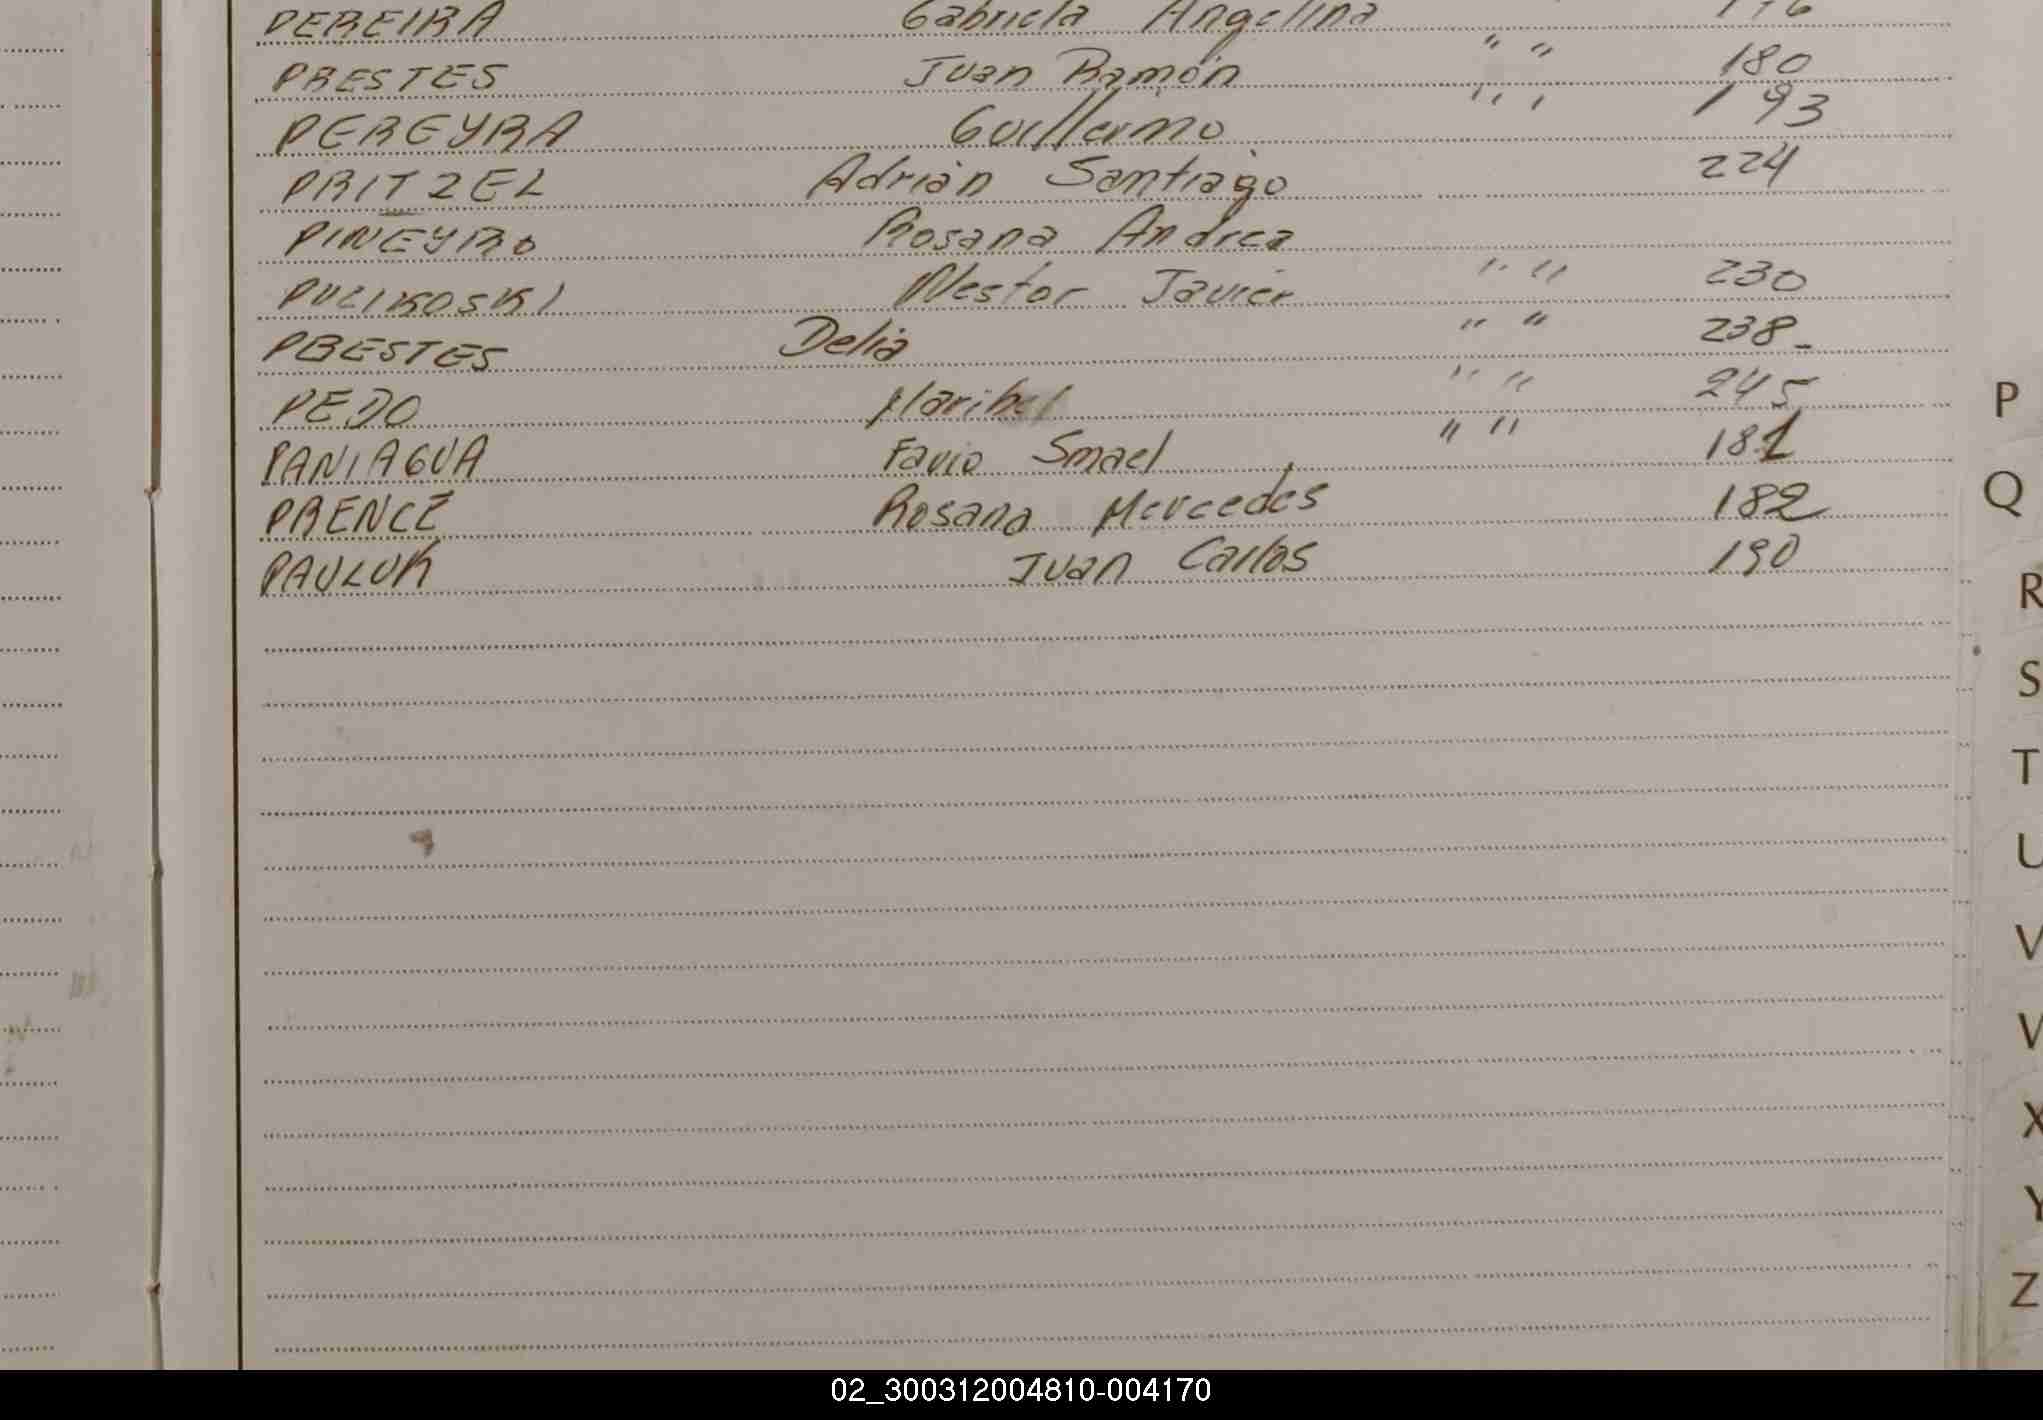 PEREIRA Gabriela Angelina 176
PRESTES Juan Ramón " " 180
PEREYRA Guillermo " " 193
PRITZEL Adrián Santiago 224
PINEYRO Rosana Andrea
PUZIKOSKI Nestor Javier " " 230
PRESTES Delia " " 238-
PEDO Maribel " " 245
PANIAGUA Favio Smael " " 181
PRENCZ Rosana Mercedes 182
PAULUK Juan Carlos 190
P
Q
R
S
T
U
V
X
Y
Z
02_300312004810-004170